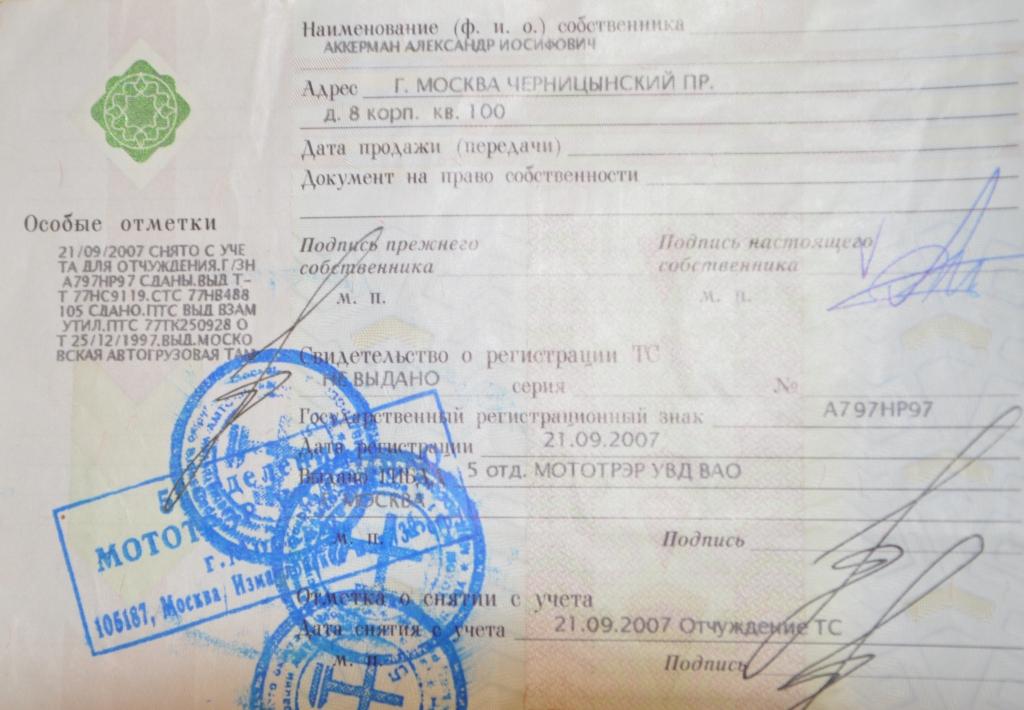 Наименование (ф. и. о.) собственника
АККЕРМАН АЛЕКСАНДР ИОСИФОВИЧ
Адрес Г. МОСКВА ЧЕРНИЦЫНСКИЙ ПР.
д. 8 корп. кв. 100
Дата продажи (передачи)
Документ на право собственности
Особые отметки
21/09/2007 СНЯТО С УЧЕ
ТА ДЛЯ ОТЧУЖДЕНИЯ.Г/ЗН
А797НР97 СДАНЫ.ВЫД Т-
Т 77НС9119.СТС 77НВ488
105 СДАНО.ПТС ВЫД ВЗАМ
УТИЛ.ПТС 77ТК250928 О
Т 25/12/1997.ВЫД.МОСКО
ВСКАЯ АВТОГРУЗОВАЯ ТАМ
Подпись прежнего собственника
м. п.
Подпись настоящего собственника
м. п.
Свидетельство о регистрации ТС
НЕ ВЫДАНО серия №
Государственный регистрационный знак А797НР97
Дата регистрации 21.09.2007
Выдано ГИБДД 5 отд. МОТОТРЭР УВД ВАО
Г. МОСКВА
м. п. Подпись
Отметка о снятии с учета
Дата снятия с учета 21.09.2007 Отчуждение ТС
м. п. Подпись
106187, Москва